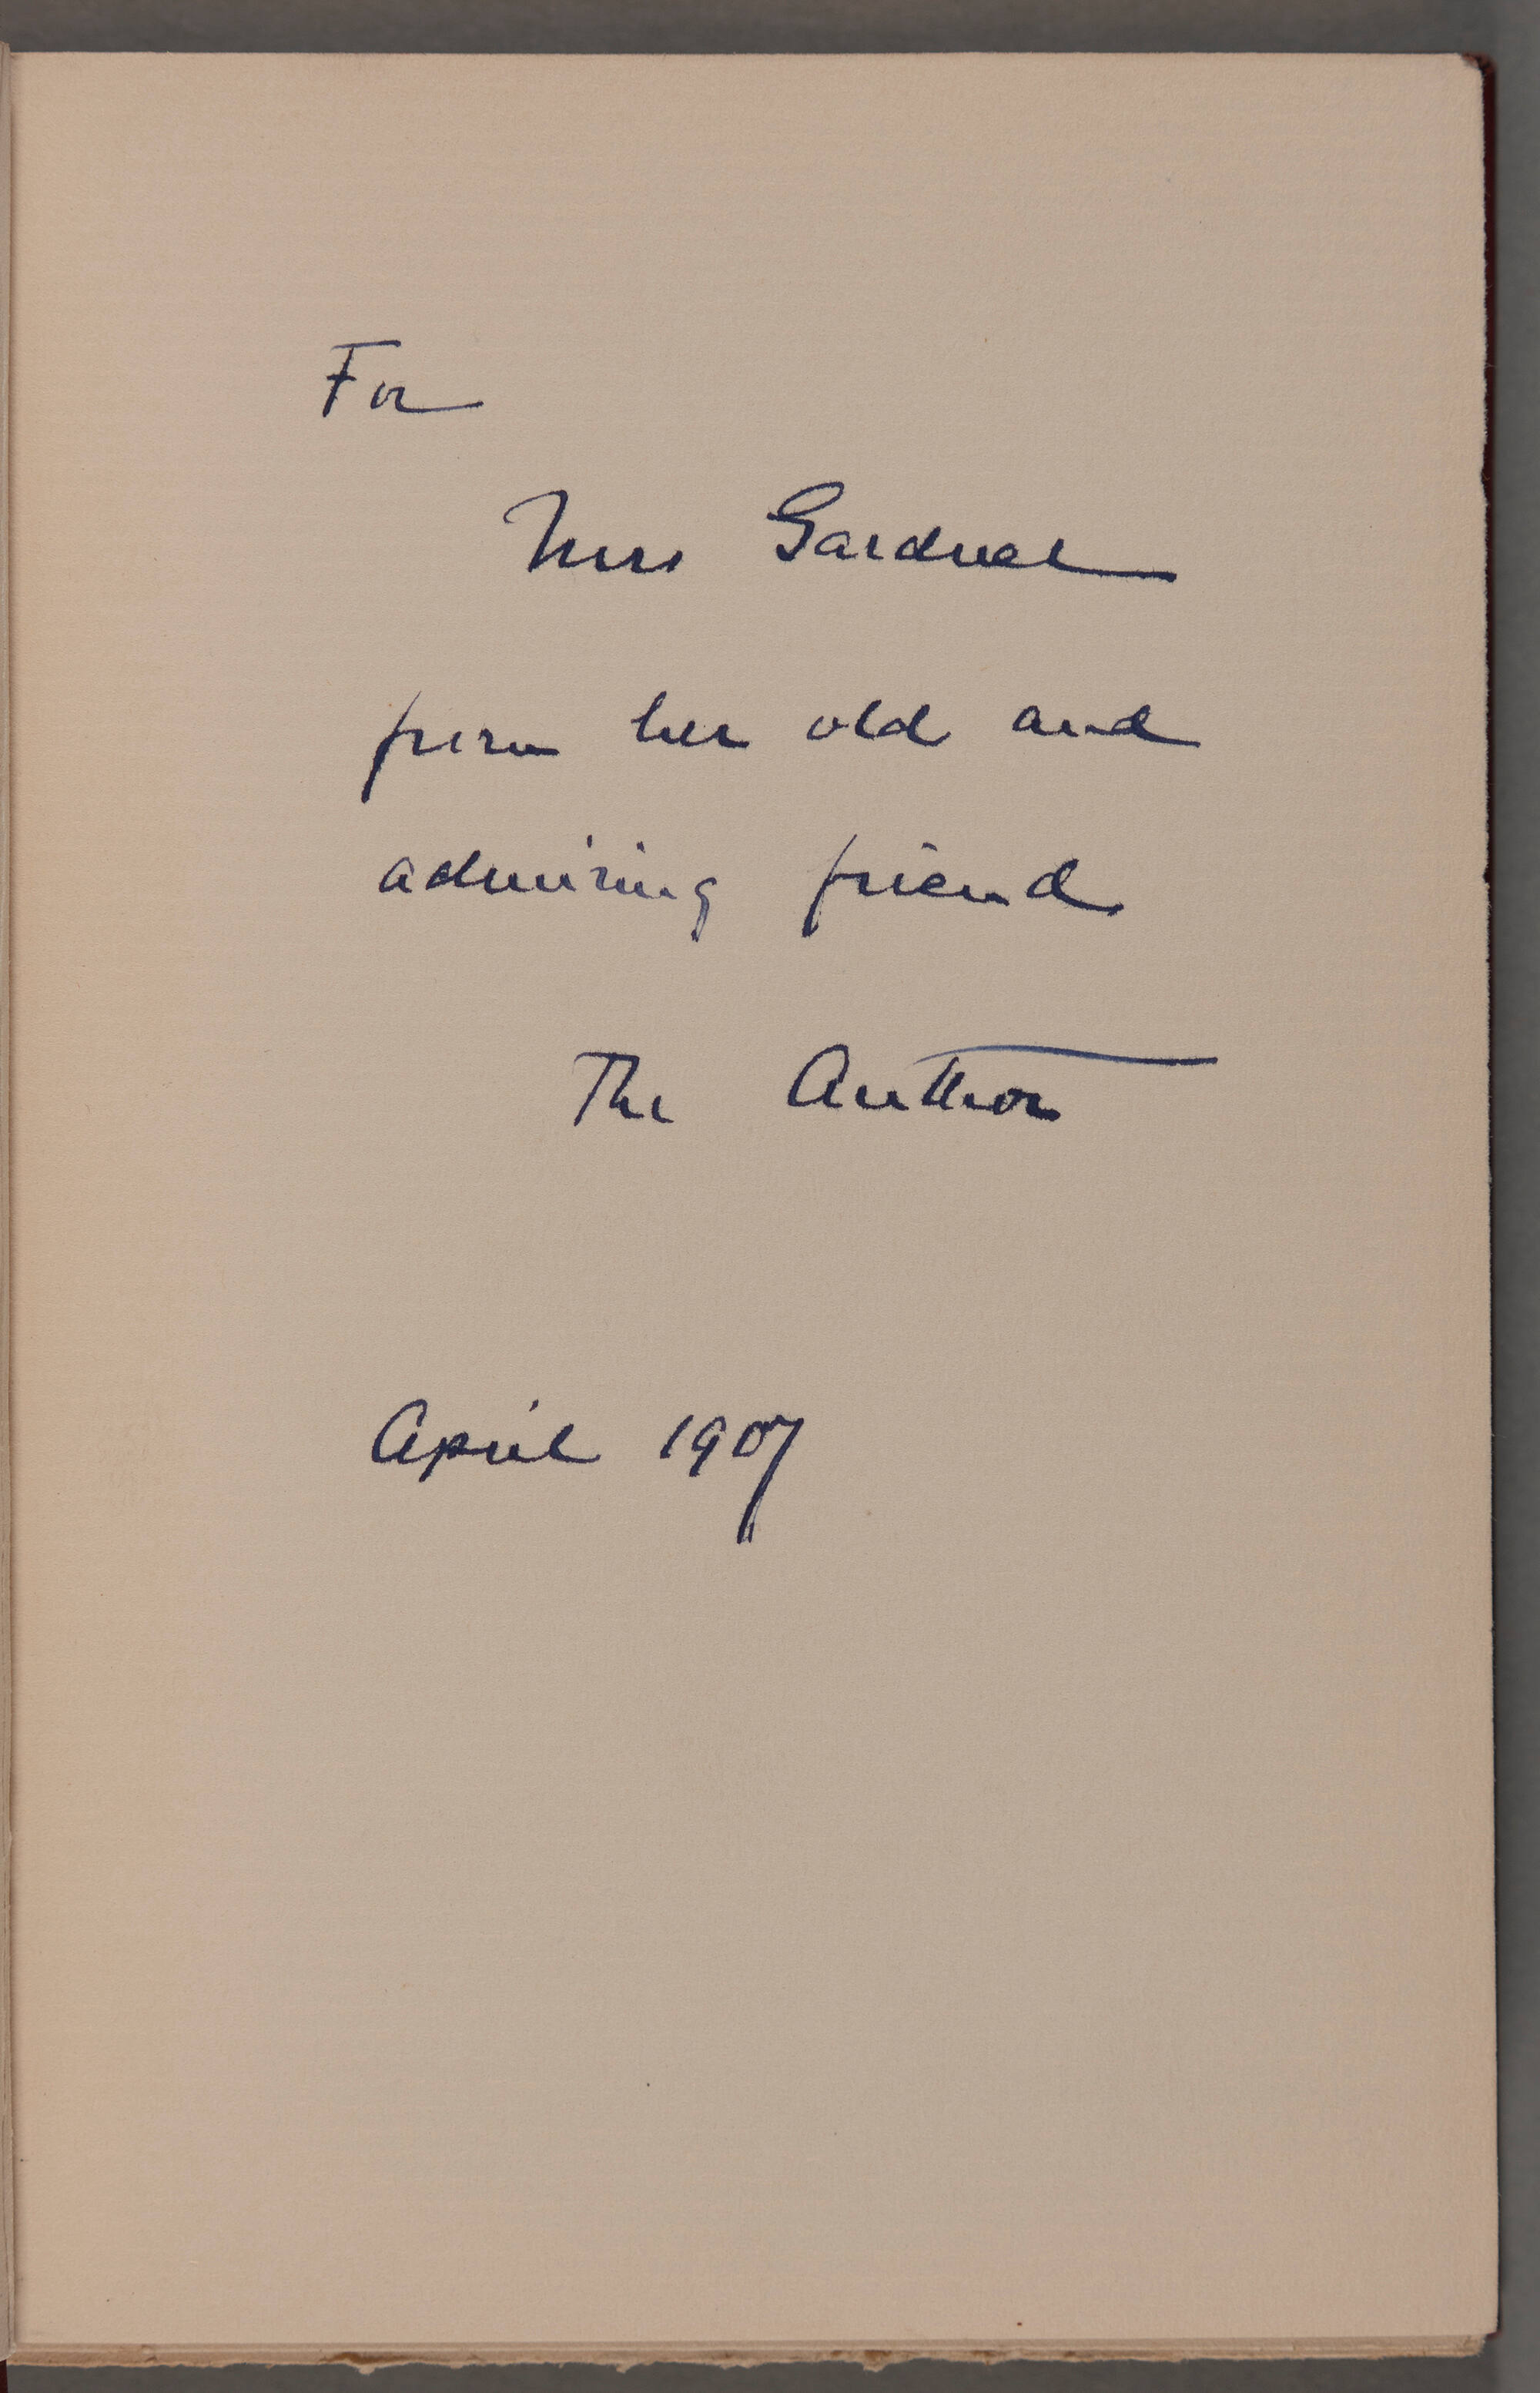 For
Mrs Gardner
from her old and
admiring friend
The Author
April 1907